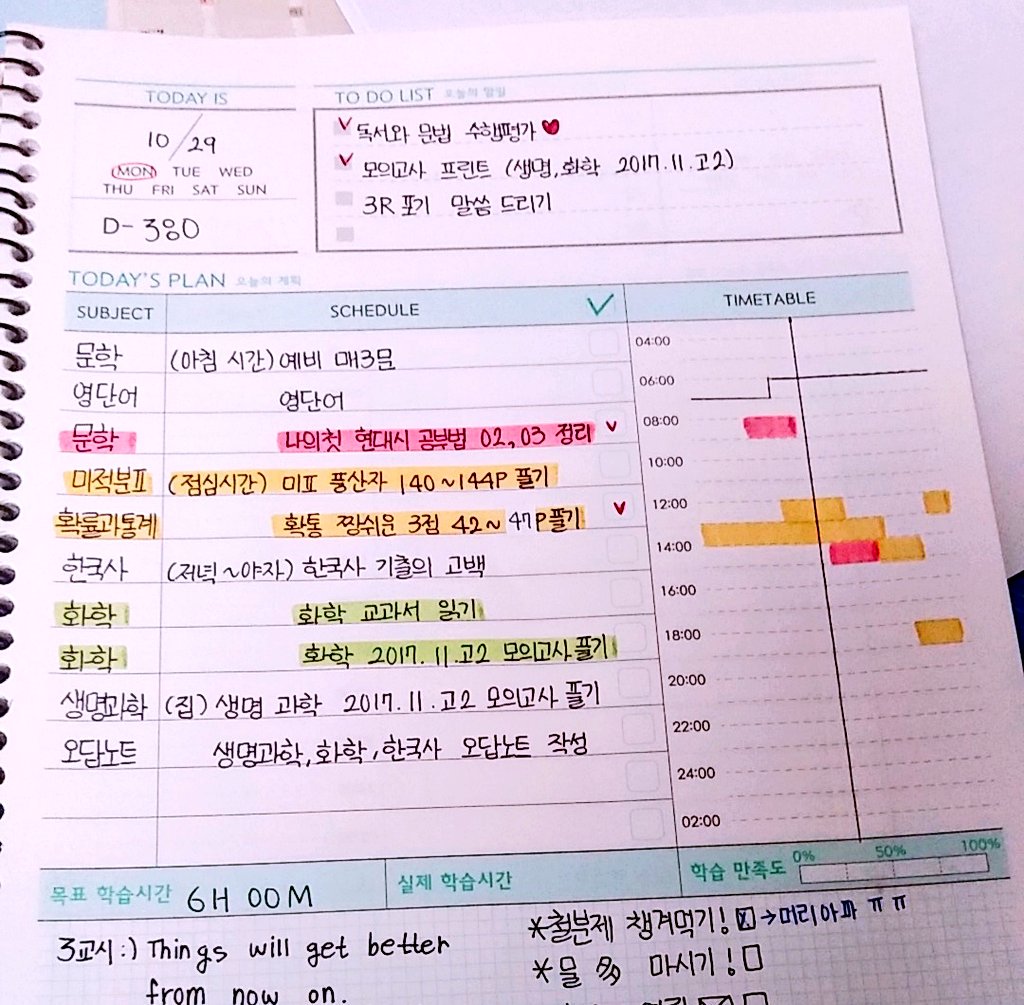 TODAY IS
10/29
MON TUE WED
THU FRI SAT SUN
D-380
TO DO LIST 오늘의 할일
독서와 문법 수행평가 ♥
모의고사 프린트 (생명,화학 2017.11.고2)
3R 포기 말씀 드리기
TODAY'S PLAN 오늘의 계획
SUBJECT SCHEDULE TIMETABLE
문학 (아침 시간) 예비 매3문
영단어 영단어
문학 나의첫 현대시 공부법 02,03 정리
미적분Ⅱ (점심시간) 미Ⅱ 풍산자 140~144P 풀기
확률과통계 확통 짱쉬운 3점 42~47P풀기
한국사 (저녁~야자) 한국사 기출의 고백
화학 화학 교과서 읽기
화학 화학 2017.11.고2 모의고사 풀기
생명과학 (집) 생명 과학 2017.11.고2 모의고사 풀기
오답노트 생명과학,화학,한국사 오답노트 작성
04:00
06:00
08:00
10:00
12:00
14:00
16:00
18:00
20:00
22:00
24:00
02:00
목표 학습시간 6H 00M 실제 학습시간 학습 만족도 0% 50% 100%
3교시:) Things will get better
from now on.
*철분제 챙겨먹기! →머리아파 ㅠㅠ
*물 多 마시기!